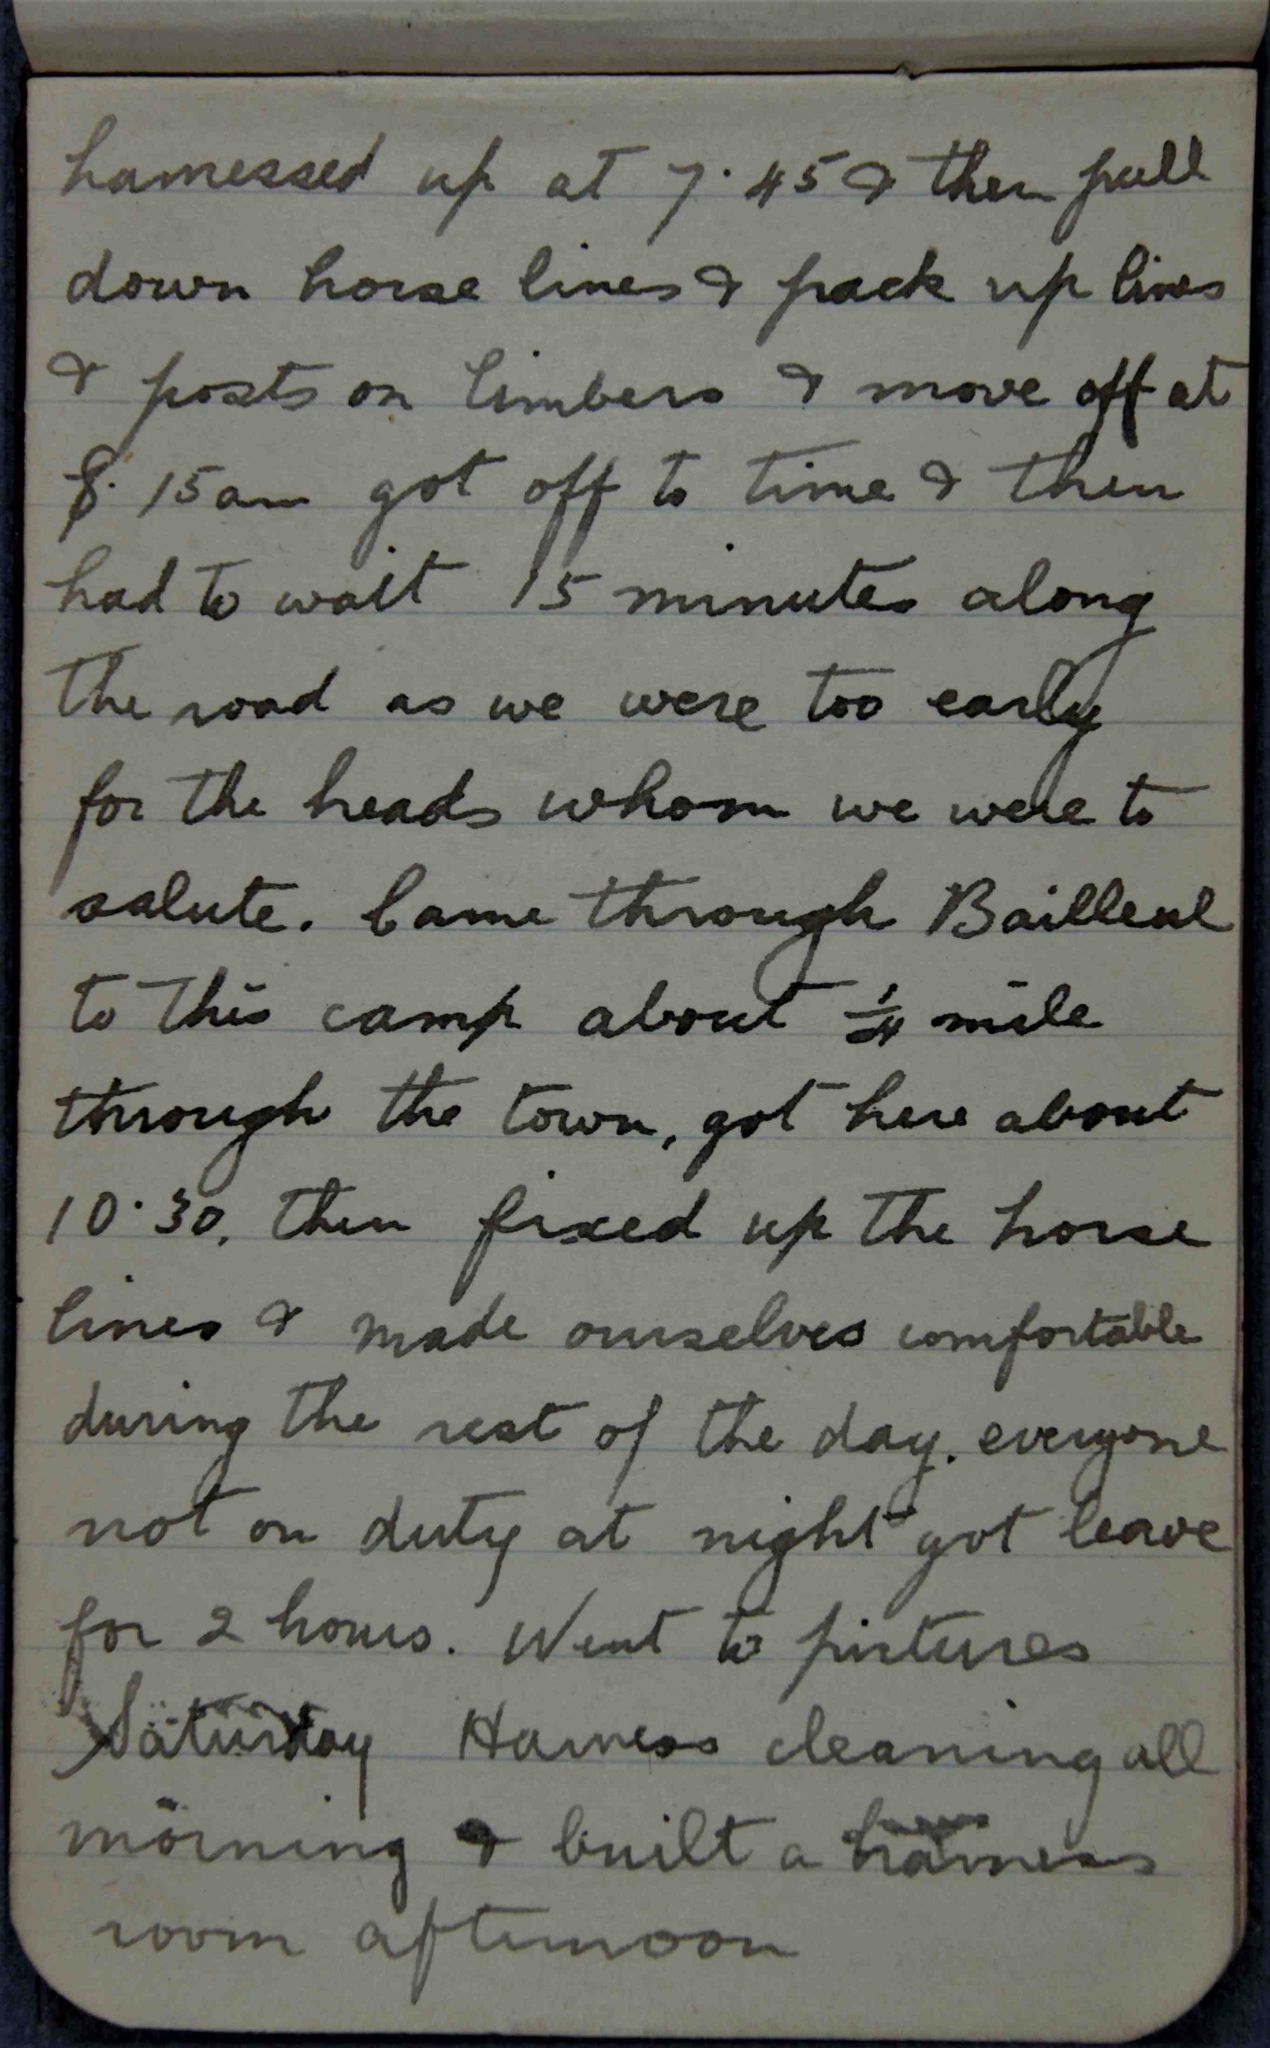 harnessed up at 7.45 & then pull
down horse lines & pack up lines
& posts on limbers & move off at
8.15am got off to time & then
had to wait 15 minutes along
the road as we were too early
for the heads whom we were to
salute. Came through Bailleul
to this camp about ¼ mile
through the town, got here about
10.30. then fixed up the horse
lines & made ourselves comfortable
during the rest of the day. everyone
not on duty at night got leave
for 2 hours. Went to pictures
Saturday Harness cleaning all
morning & built a harness
room afternoon